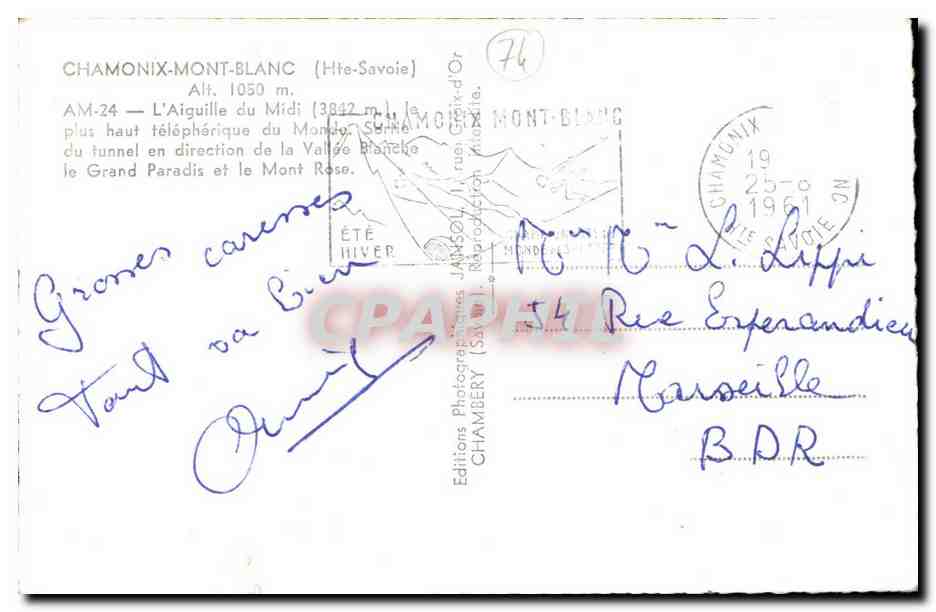 CHAMONIX-MONT-BLANC (Hte-Savoie)
Alt. 1050 m.
AM-24 — L'Aiguille du Midi (3842 m.) le
plus haut téléphérique du Monde. Sortie
du tunnel en direction de la Vallée Blanche
le Grand Paradis et le Mont Rose.
Grosses caresses
Tout va bien
Editions Photographiques JANSOL, 1, rue Croix-d'Or
CHAMBÉRY (Savoie). Reproduction interdite.
74
CHAMONIX MONT-BLANC
ÉTÉ
HIVER
CHAMONIX
19
25-8
1961
Hte SAVOIE
Mr Mme L. Lippi
54 Rue Esperandieu
Marseille
BDR
CPAPHIL